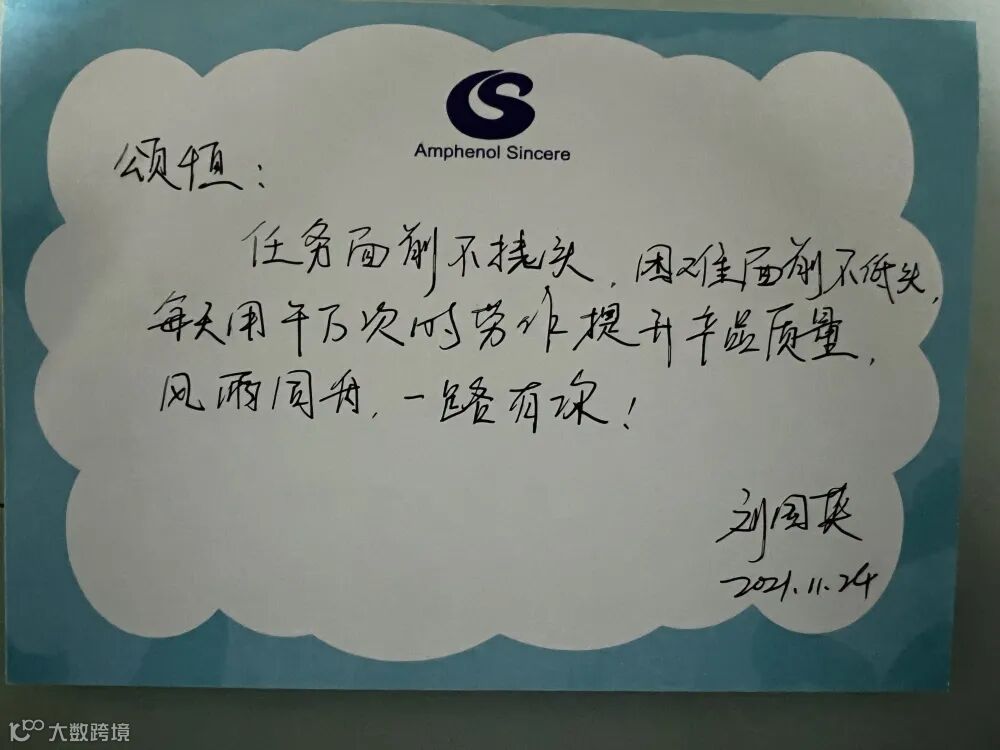 Amphenol Sincere
颂恒：
任务面前不挠头，困难面前不低头，
每天用千万次的劳作提升产品质量，
风雨同舟，一路有你！
刘国英
2021.11.24
大数跨境